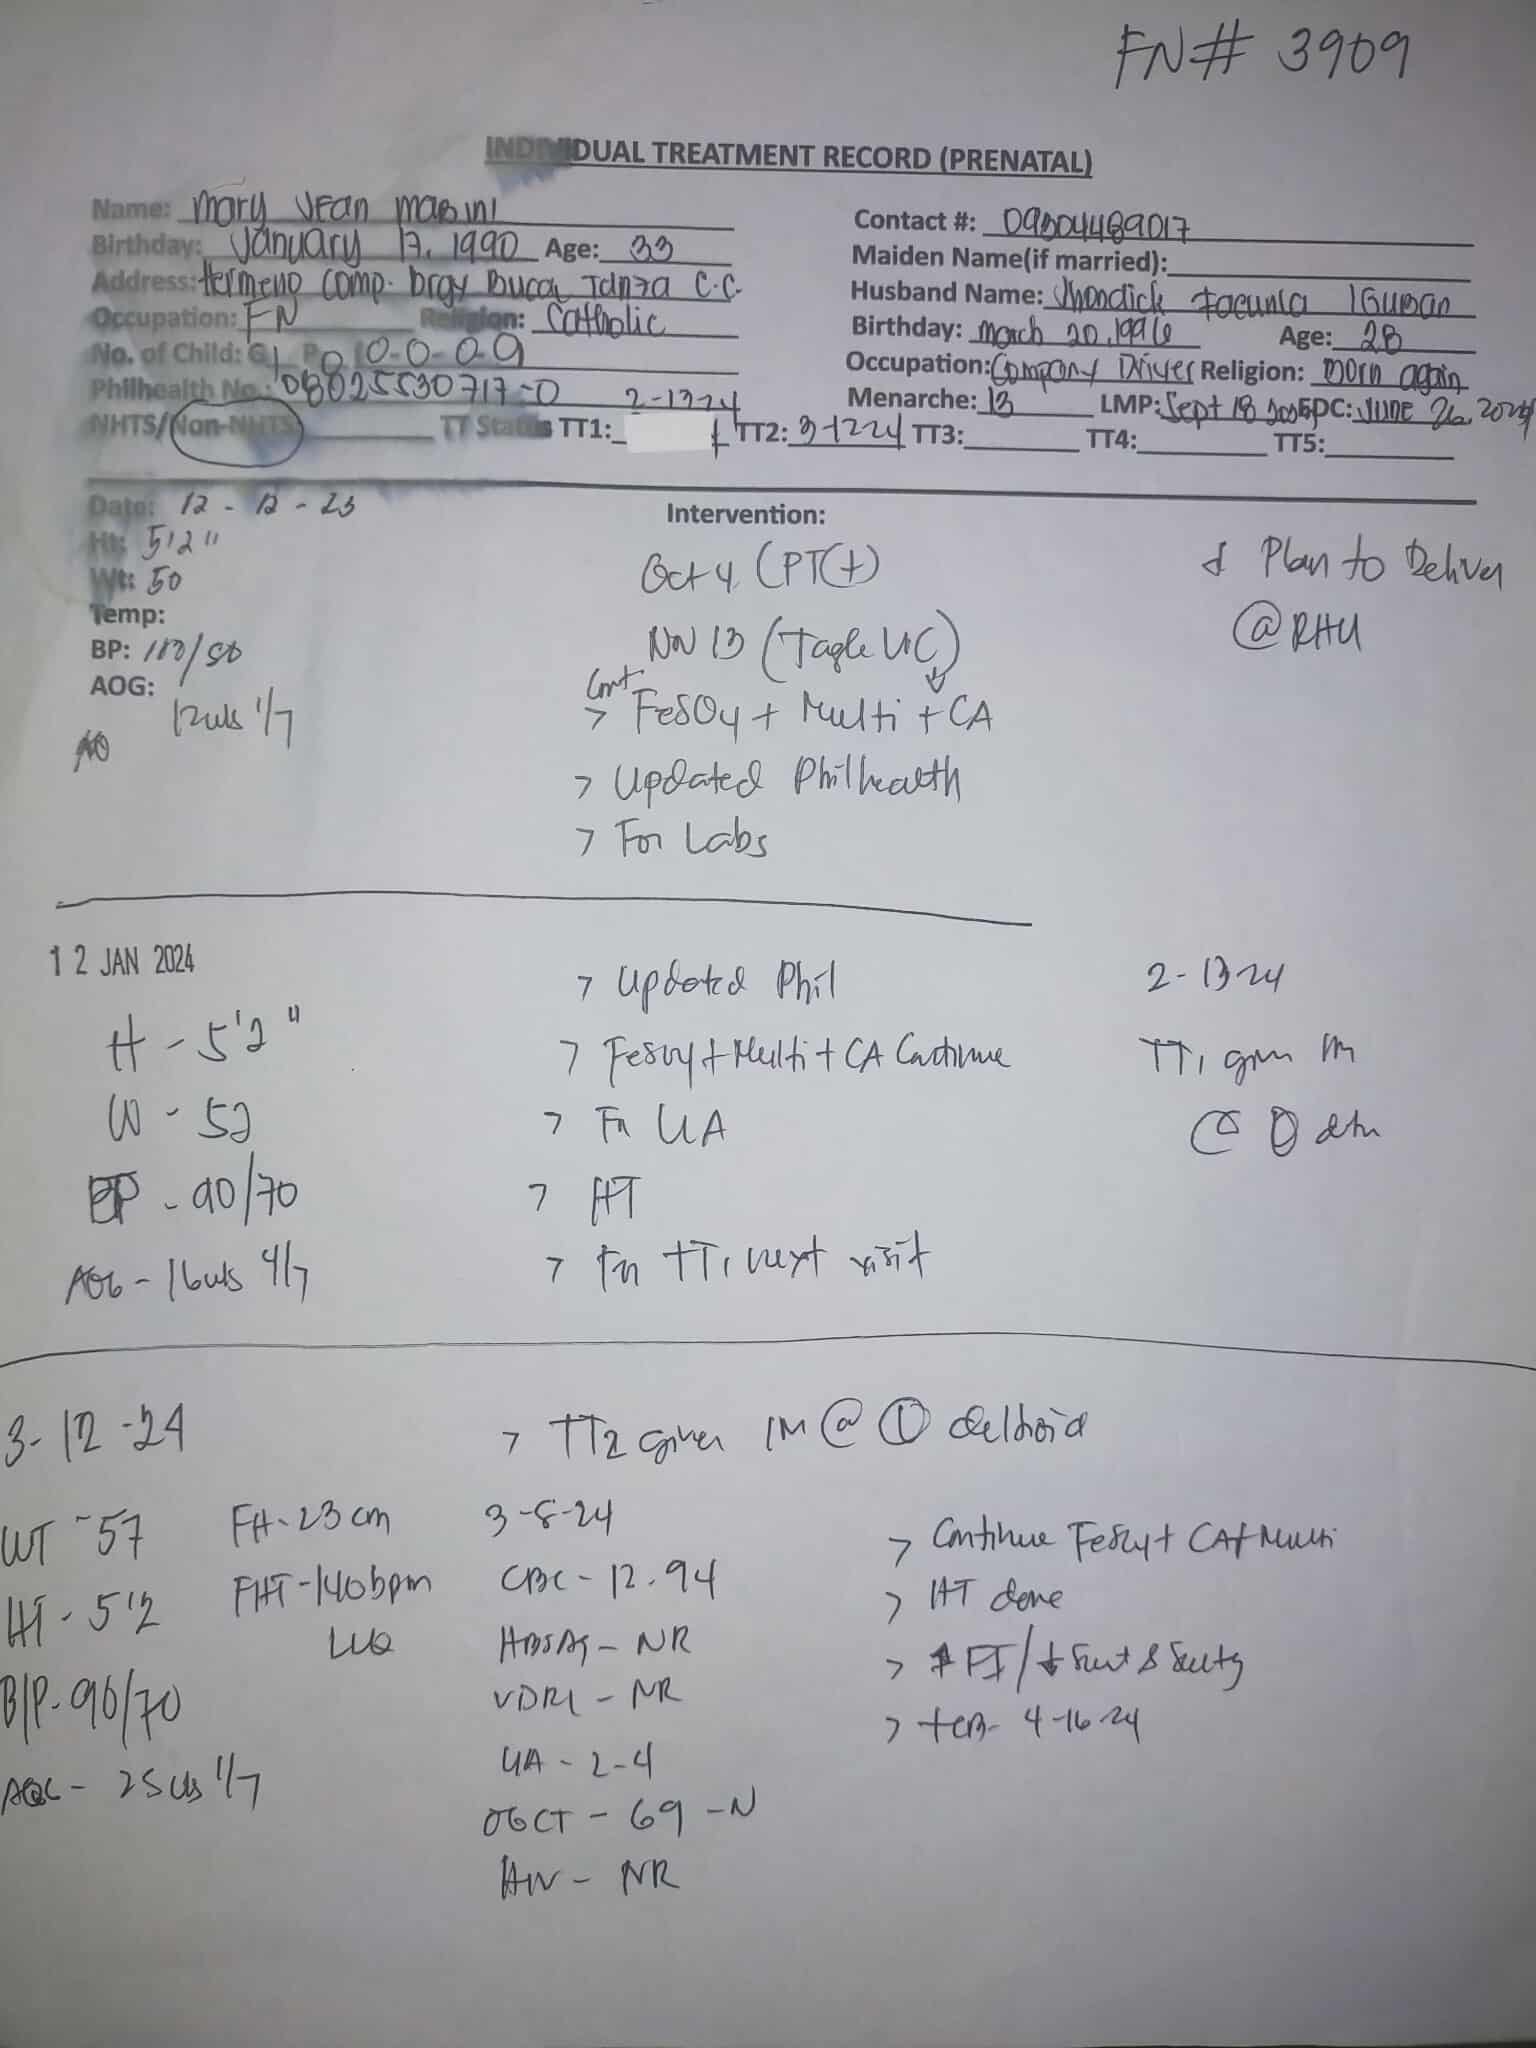 FN# 3909
INDIVIDUAL TREATMENT RECORD (PRENATAL)
Name: Mary Jean Mabini
Birthday: January 17, 1990 Age: 33
Address: Hermeno comp. brgy Bucal Tanza C.C.
Occupation: FN Religion: Catholic
No. of Child: G1 P0 (0-0-0-0)
Philhealth No.: 08025530717-0 2-13-24
NHTS/Non-NHTS TT Status TT1: TT2: 3-12-24 TT3: TT4: TT5:
Contact #: 09304489017
Maiden Name(if married):
Husband Name: Jhondick Facunla
Birthday: March 20, 1996 Age: 28
Occupation: Company Driver Religion: Born again
Menarche: 13 LMP: Sept 18 EDC: June 26, 2024
Date: 12-12-23
Ht: 5'2"
Wt: 50
Temp:
BP: /80
AOG: 12wks 1/7
Intervention:
Oct 4 (PT(+)
Nov 13 (Tagle UC)
Cont
> FeSO4 + Multi + CA
> Updated Philhealth
> For Labs
Plan to Deliver
@ RHU
12 JAN 2024
H - 5'2"
W - 52
BP - 90/70
AOG - 16wks 4/7
> Updated Phil
> FeSO4 + Multi + CA Continue
> For UA
> HT
> For TT1 next visit
2-13-24
TT1 given IM
@ D
3-12-24
WT - 57
HT - 5'2
B/P - 90/70
AOG - 25 wks 1/7
FH - 23 cm
FHT - 140bpm
LUQ
> TT2 given IM @ D deltoid
3-8-24
CBC - 12.94
HBSAg - NR
VDRL - NR
UA - 2-4
OGCT - 69 - N
HIV - NR
> Continue FeSO4 + CA + Multi
> HT done
> TCB - 4-16-24